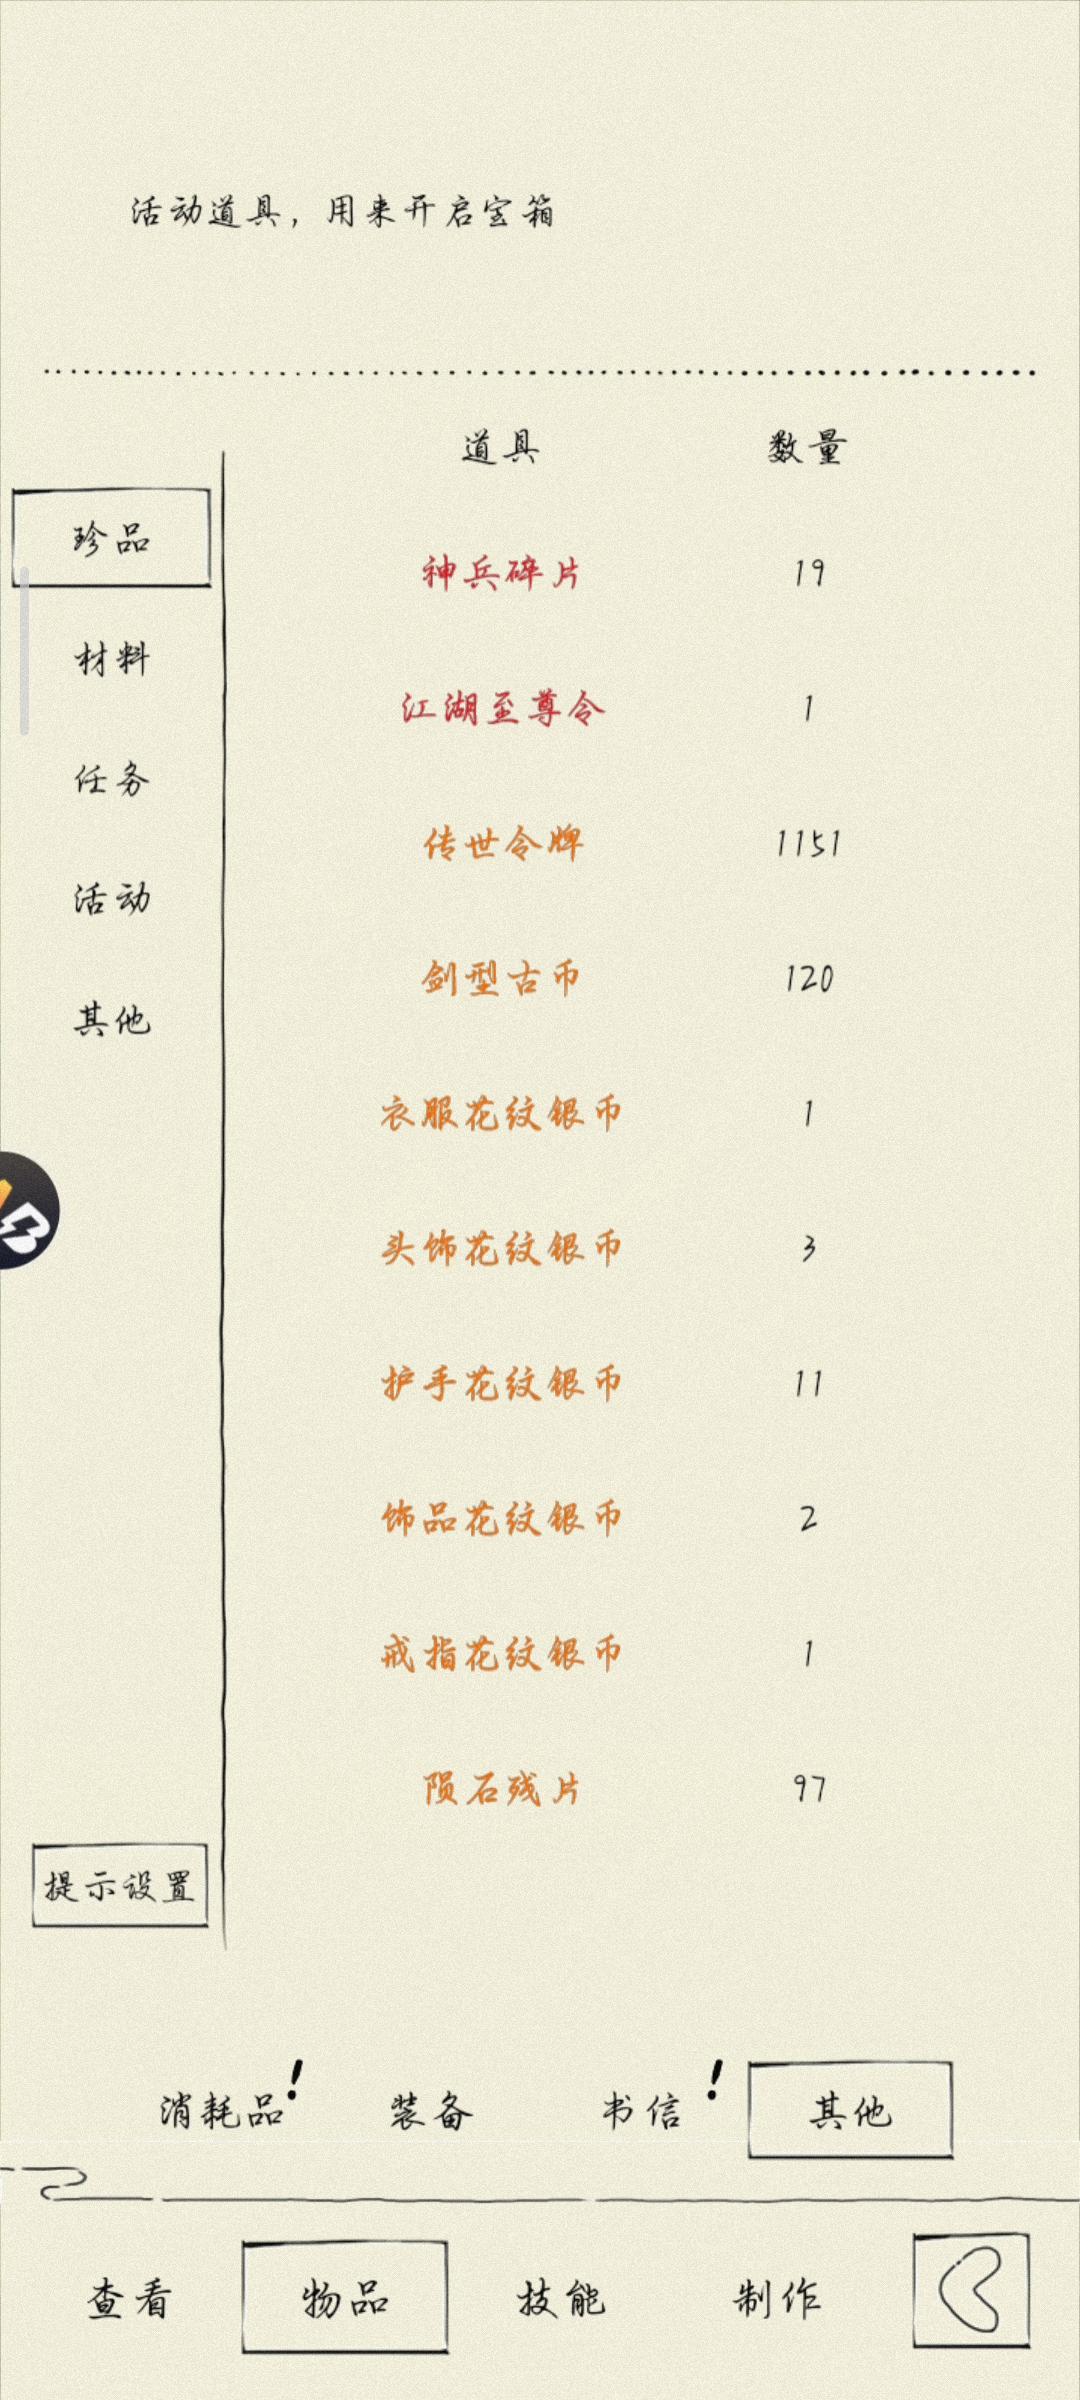 活动道具，用来开启宝箱
道具 数量
珍品
神兵碎片 19
材料
江湖至尊令 1
任务
传世令牌 1151
活动
剑型古币 120
其他
衣服花纹银币 1
头饰花纹银币 3
护手花纹银币 11
饰品花纹银币 2
戒指花纹银币 1
陨石残片 97
提示设置
消耗品! 装备 书信! 其他
查看 物品 技能 制作